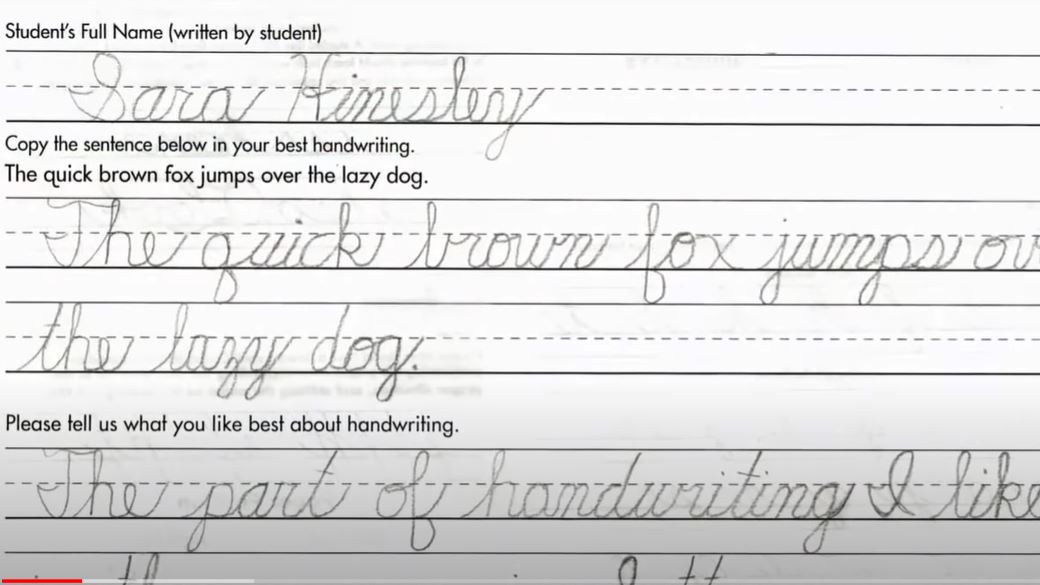 Student's Full Name (written by student)
Sara Hinesley
Copy the sentence below in your best handwriting.
The quick brown fox jumps over the lazy dog.
The quick brown fox jumps ov
the lazy dog.
Please tell us what you like best about handwriting.
The part of handwriting I like